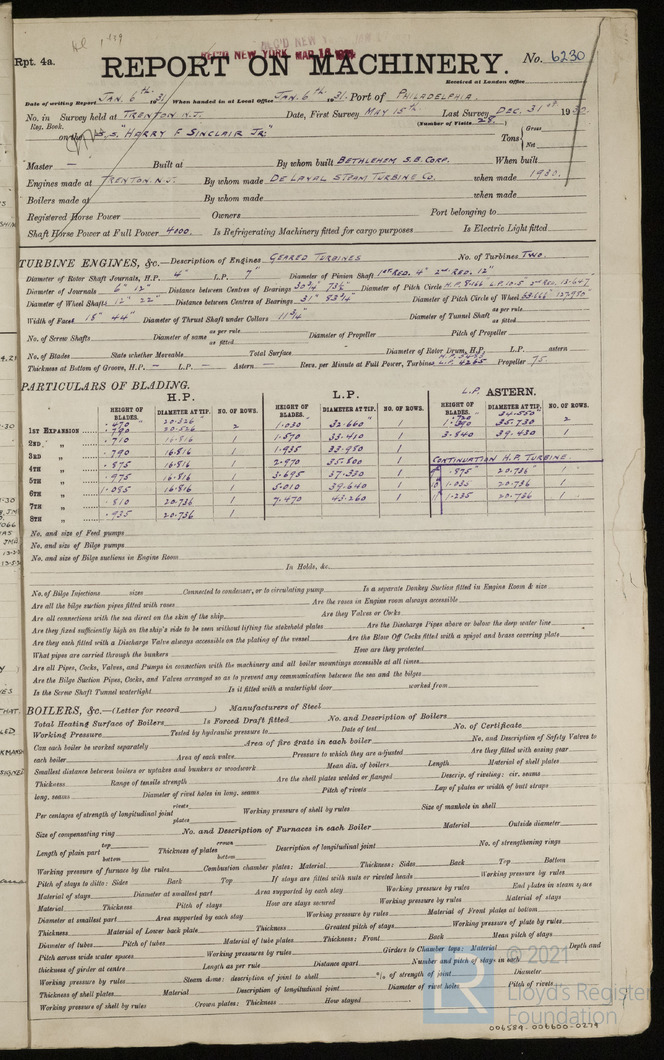 Rpt. 4a.
REC'D NEW YORK MAR 18 1931
REPORT ON MACHINERY.
No. 6230
Received at London Office
Date of writing Report JAN. 6th. 1931 When handed in at Local Office JAN. 6th. 1931. Port of PHILADELPHIA.
No. in Survey held at TRENTON N.J. Date, First Survey MAY 15th Last Survey DEC. 31st 1930
Reg. Book. (Number of Visits 28.
on the S.S. "HARRY F SINCLAIR JR."
Tons Gross
Net
Master Built at By whom built BETHLEHEM S.B. CORP. When built
Engines made at TRENTON. N.J. By whom made DE LAVAL STEAM TURBINE CO. when made 1930.
Boilers made at By whom made when made
Registered Horse Power Owners Port belonging to
Shaft Horse Power at Full Power 4000. Is Refrigerating Machinery fitted for cargo purposes Is Electric Light fitted
TURBINE ENGINES, &c.—Description of Engines GEARED TURBINES No. of Turbines TWO.
Diameter of Rotor Shaft Journals, H.P. 4" L.P. 7" Diameter of Pinion Shaft 1st RED. 4" 2nd RED. 12"
Diameter of Journals 6" 12" Distance between Centres of Bearings 30¾" 73½" Diameter of Pitch Circle
Diameter of Wheel Shaft 12" 22" Distance between Centres of Bearings 31" 83¼" Diameter of Pitch Circle of Wheel
Width of Face 18" 44" Diameter of Thrust Shaft under Collars 11¾" Diameter of Tunnel Shaft as per rule
as fitted
No. of Screw Shafts Diameter of same as per rule
as fitted Diameter of Propeller Pitch of Propeller
No. of Blades State whether Moveable Total Surface Diameter of Rotor Drum, H.P. L.P. astern
Thickness at Bottom of Groove, H.P. — L.P. — Astern — Revs. per Minute at Full Power, Turbine Propeller 75.
PARTICULARS OF BLADING.
H.P. L.P. L.P. ASTERN.
HEIGHT OF BLADES. DIAMETER AT TIP. NO. OF ROWS. HEIGHT OF BLADES. DIAMETER AT TIP. NO. OF ROWS. HEIGHT OF BLADES. DIAMETER AT TIP. NO. OF ROWS.
1ST EXPANSION .470 .790 20.326 20.526 2 1.030 32.660 1 .720 35.730 2
2ND " .710 16.816 1 1.570 33.410 1 3.840 39.430 1
3RD " .790 16.816 1 1.935 33.980 1
CONTINUATION H.P. TURBINE.
4TH " .875 16.816 1 2.970 35.800 1 9 .875" 20.736" 1
5TH " .975 16.816 1 3.695 37.330 1 10 1.035 20.736 1
6TH " 1.085 16.816 1 5.010 39.640 1 11 1.235 20.736 1
7TH " .810 20.736 1 7.470 43.260 1
8TH " .935 20.736 1
No. and size of Feed pumps
No. and size of Bilge pumps
No. and size of Bilge suctions in Engine Room
In Holds, &c.
No. of Bilge Injections sizes Connected to condenser, or to circulating pump Is a separate Donkey Suction fitted in Engine Room & size
Are all the bilge suction pipes fitted with roses Are the roses in Engine room always accessible
Are all connections with the sea direct on the skin of the ship Are they Valves or Cocks
Are they fixed sufficiently high on the ship's side to be seen without lifting the stokehold plates Are the Discharge Pipes above or below the deep water line
Are they each fitted with a Discharge Valve always accessible on the plating of the vessel Are the Blow Off Cocks fitted with a spigot and brass covering plate
What pipes are carried through the bunkers How are they protected
Are all Pipes, Cocks, Valves, and Pumps in connection with the machinery and all boiler mountings accessible at all times
Are the Bilge Suction Pipes, Cocks, and Valves arranged so as to prevent any communication between the sea and the bilges
Is the Screw Shaft Tunnel watertight Is it fitted with a watertight door worked from
BOILERS, &c.—(Letter for record ) Manufacturers of Steel
Total Heating Surface of Boilers Is Forced Draft fitted No. and Description of Boilers
Working Pressure Tested by hydraulic pressure to Date of test No. of Certificate
Can each boiler be worked separately Area of fire grate in each boiler No. and Description of Safety Valves to
each boiler Area of each valve Pressure to which they are adjusted Are they fitted with easing gear
Smallest distance between boilers or uptakes and bunkers or woodwork Mean dia. of boilers Length Material of shell plates
Thickness Range of tensile strength Are the shell plates welded or flanged Descrip. of riveting: cir. seams
long. seams Diameter of rivet holes in long. seams Pitch of rivets Lap of plates or width of butt straps
Per centages of strength of longitudinal joint rivets
plates Working pressure of shell by rules Size of manhole in shell
Size of compensating ring No. and Description of Furnaces in each Boiler Material Outside diameter
Length of plain part top
bottom Thickness of plates crown
bottom Description of longitudinal joint No. of strengthening rings
Working pressure of furnace by the rules Combustion chamber plates: Material Thickness: Sides Back Top Bottom
Pitch of stays to ditto: Sides Back Top If stays are fitted with nuts or riveted heads Working pressure by rules
Material of stays Diameter at smallest part Area supported by each stay Working pressure by rules End plates in steam space
Material Thickness Pitch of stays How are stays secured Working pressure by rules Material of stays
Diameter at smallest part Area supported by each stay Working pressure by rules Material of Front plates at bottom
Thickness Material of Lower back plate Thickness Greatest pitch of stays Working pressure of plate by rules
Diameter of tubes Pitch of tubes Material of tube plates Thickness: Front Back Mean pitch of stays
Pitch across wide water spaces Working pressures by rules Girders to Chamber tops: Material Depth and
thickness of girder at centre Length as per rule Distance apart Number and pitch of stays in each
Working pressure by rules Steam dome: description of joint to shell % of strength of joint Diameter
Thickness of shell plates Material Description of longitudinal joint Diameter of rivet holes Pitch of rivets
Working pressure of shell by rules Crown plates: Thickness How stayed
© 2021
LR Lloyd's Register
Foundation
006584-006600-0274